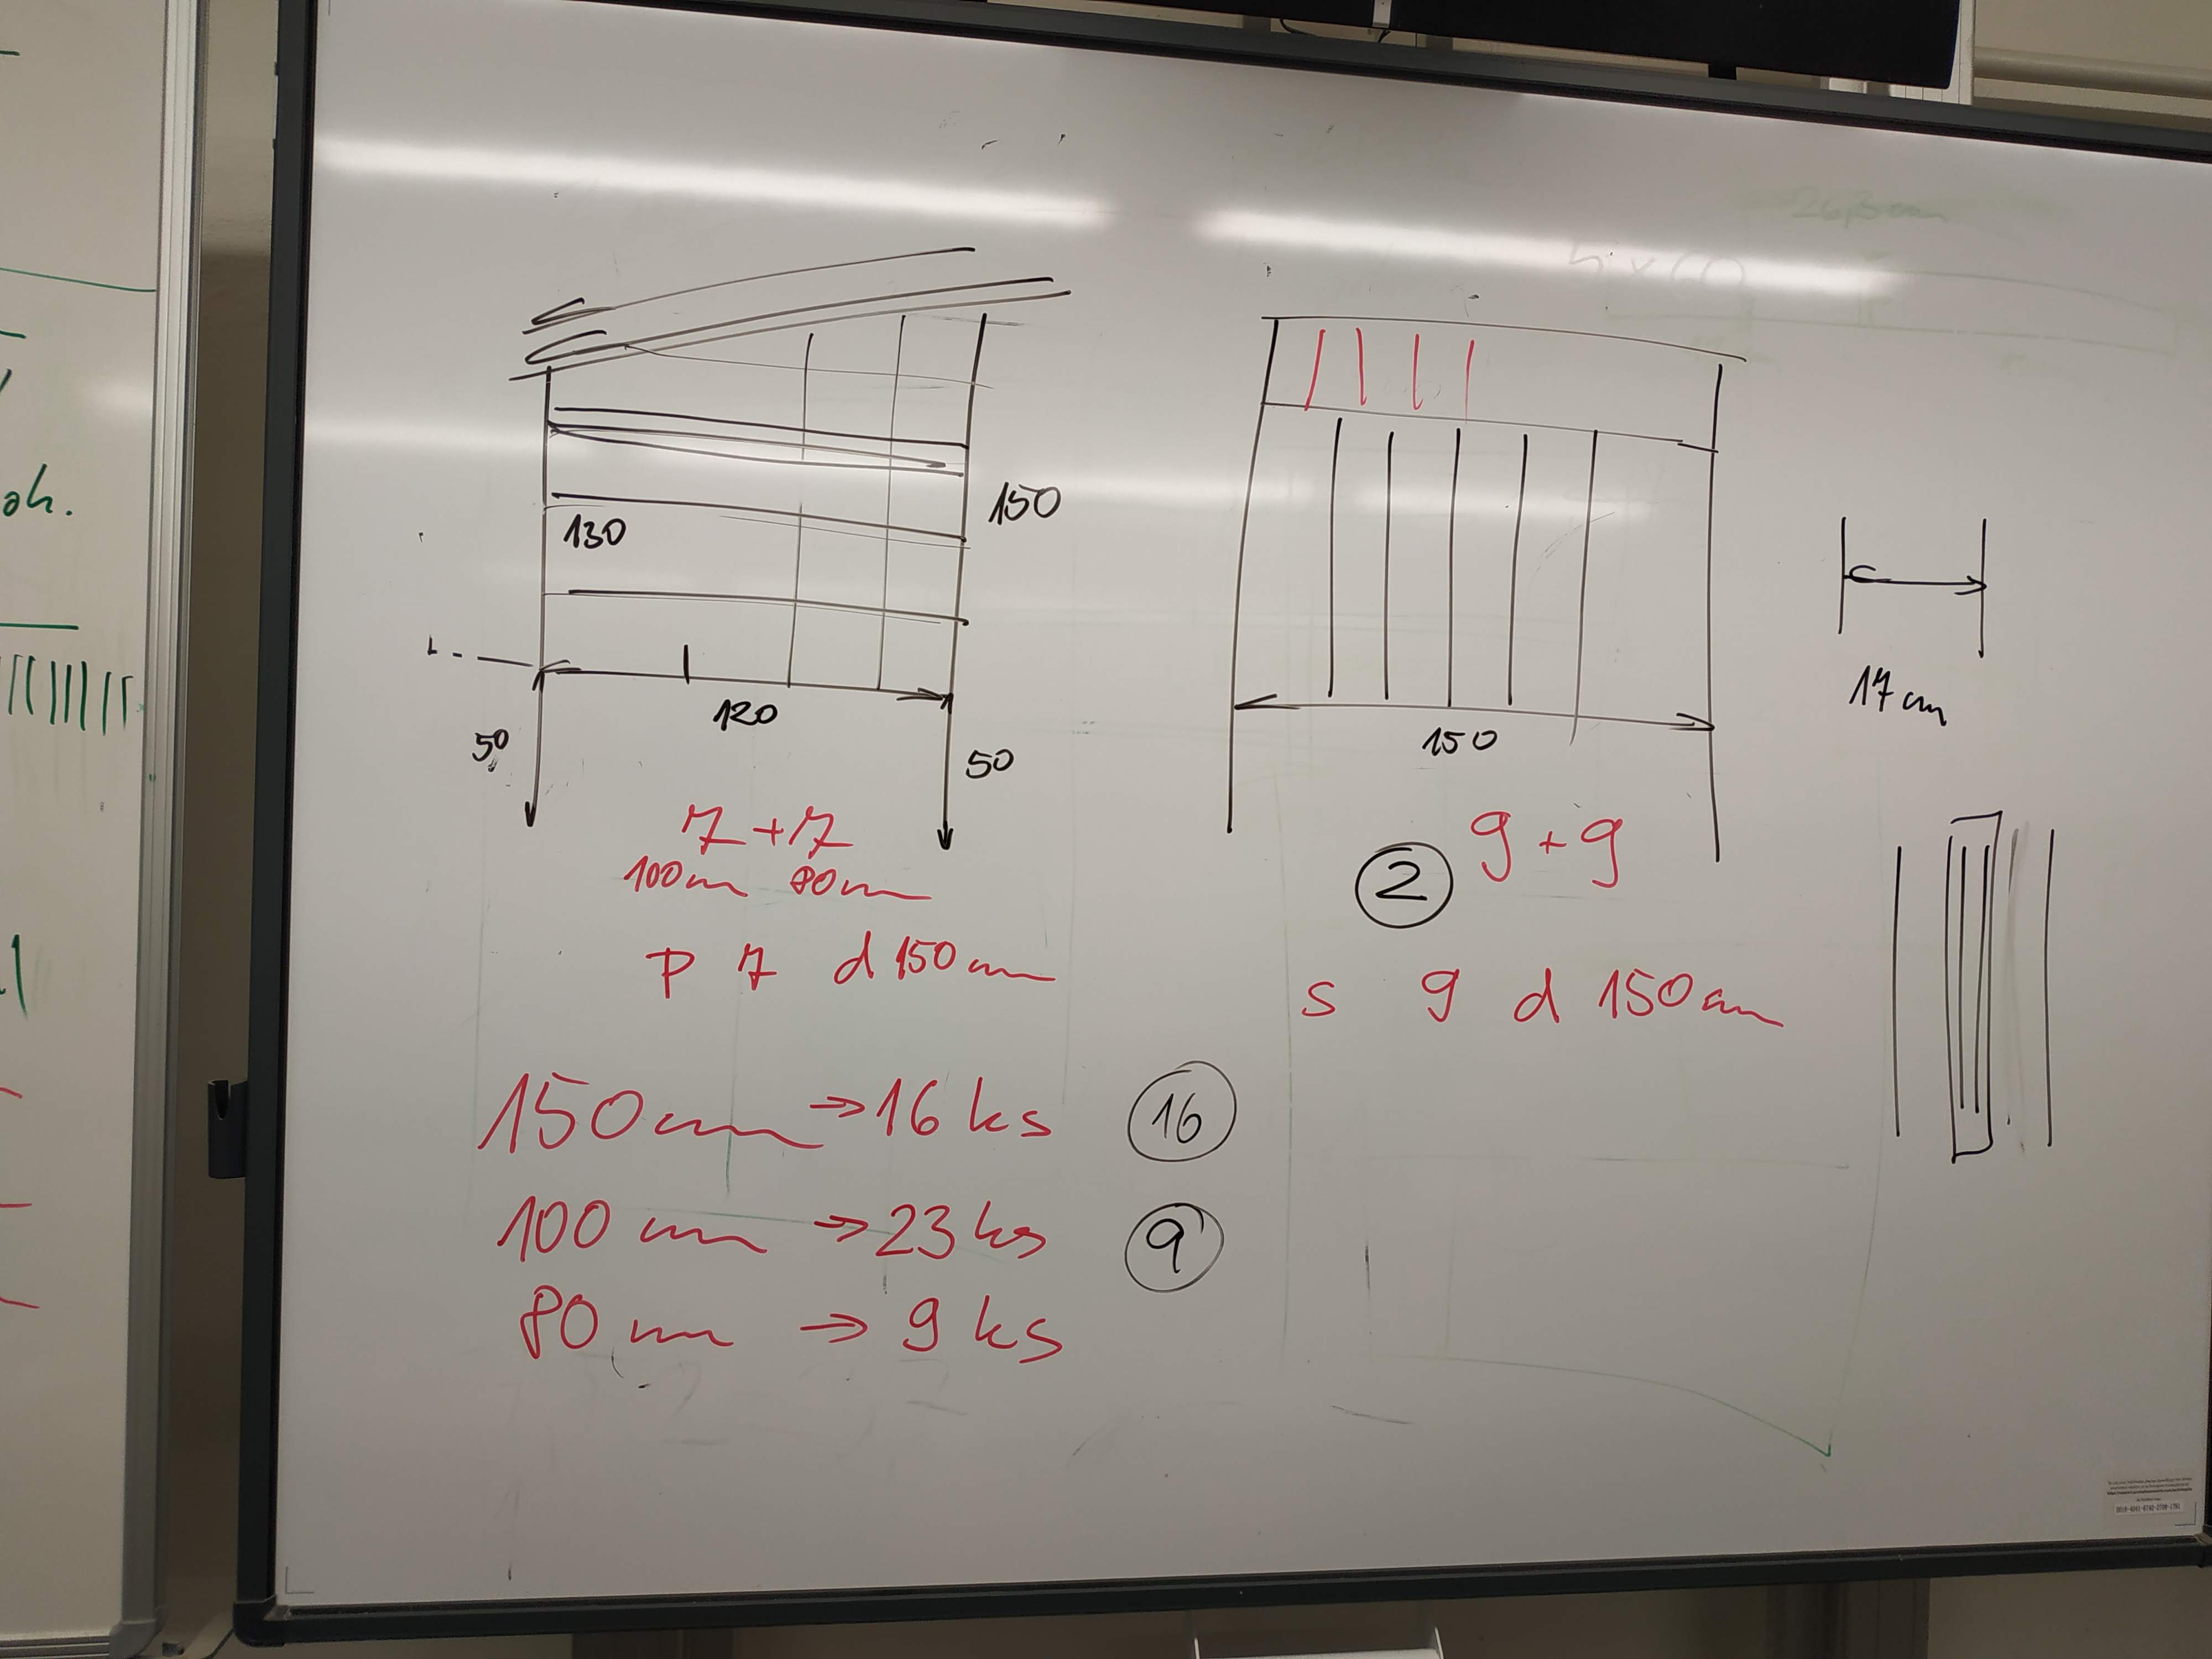 oh.
150
130
120
50
50
150
17 cm
7 + 7
100cm 80cm
2
9 + 9
p 7 d 150cm
s 9 d 150cm
150cm → 16 ks
16
100 cm → 23 ks
9
80 cm → 9 ks